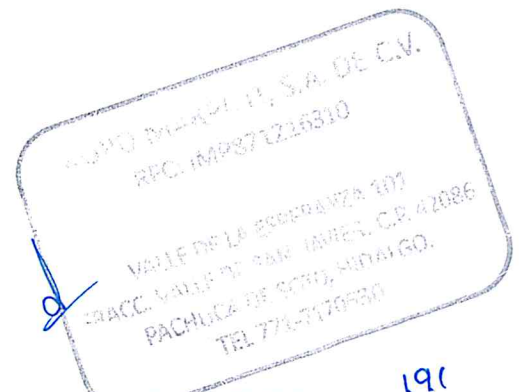 S.A. DE C.V.
RFC. IMP871216310
VALLE DE LA ESPERANZA 101
FRACC. VALLE DE SAN JAVIER, C.P. 42086
PACHUCA DE SOTO, HIDALGO.
TEL 771-7170530
191